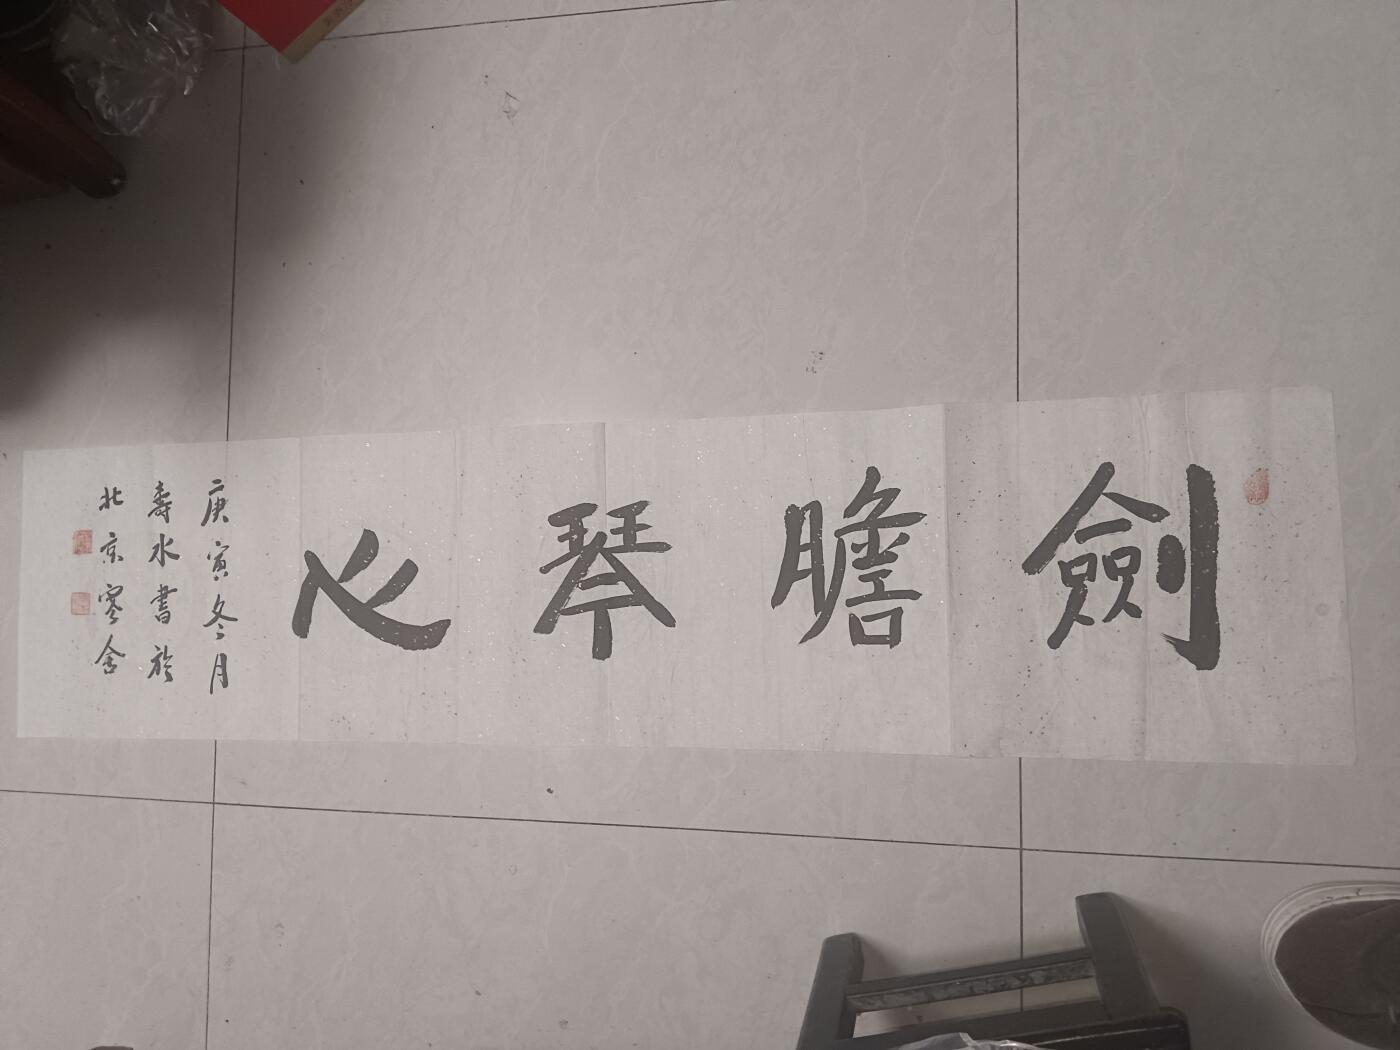 劍膽琴心
庚寅冬月
壽水書於
北京寒舍